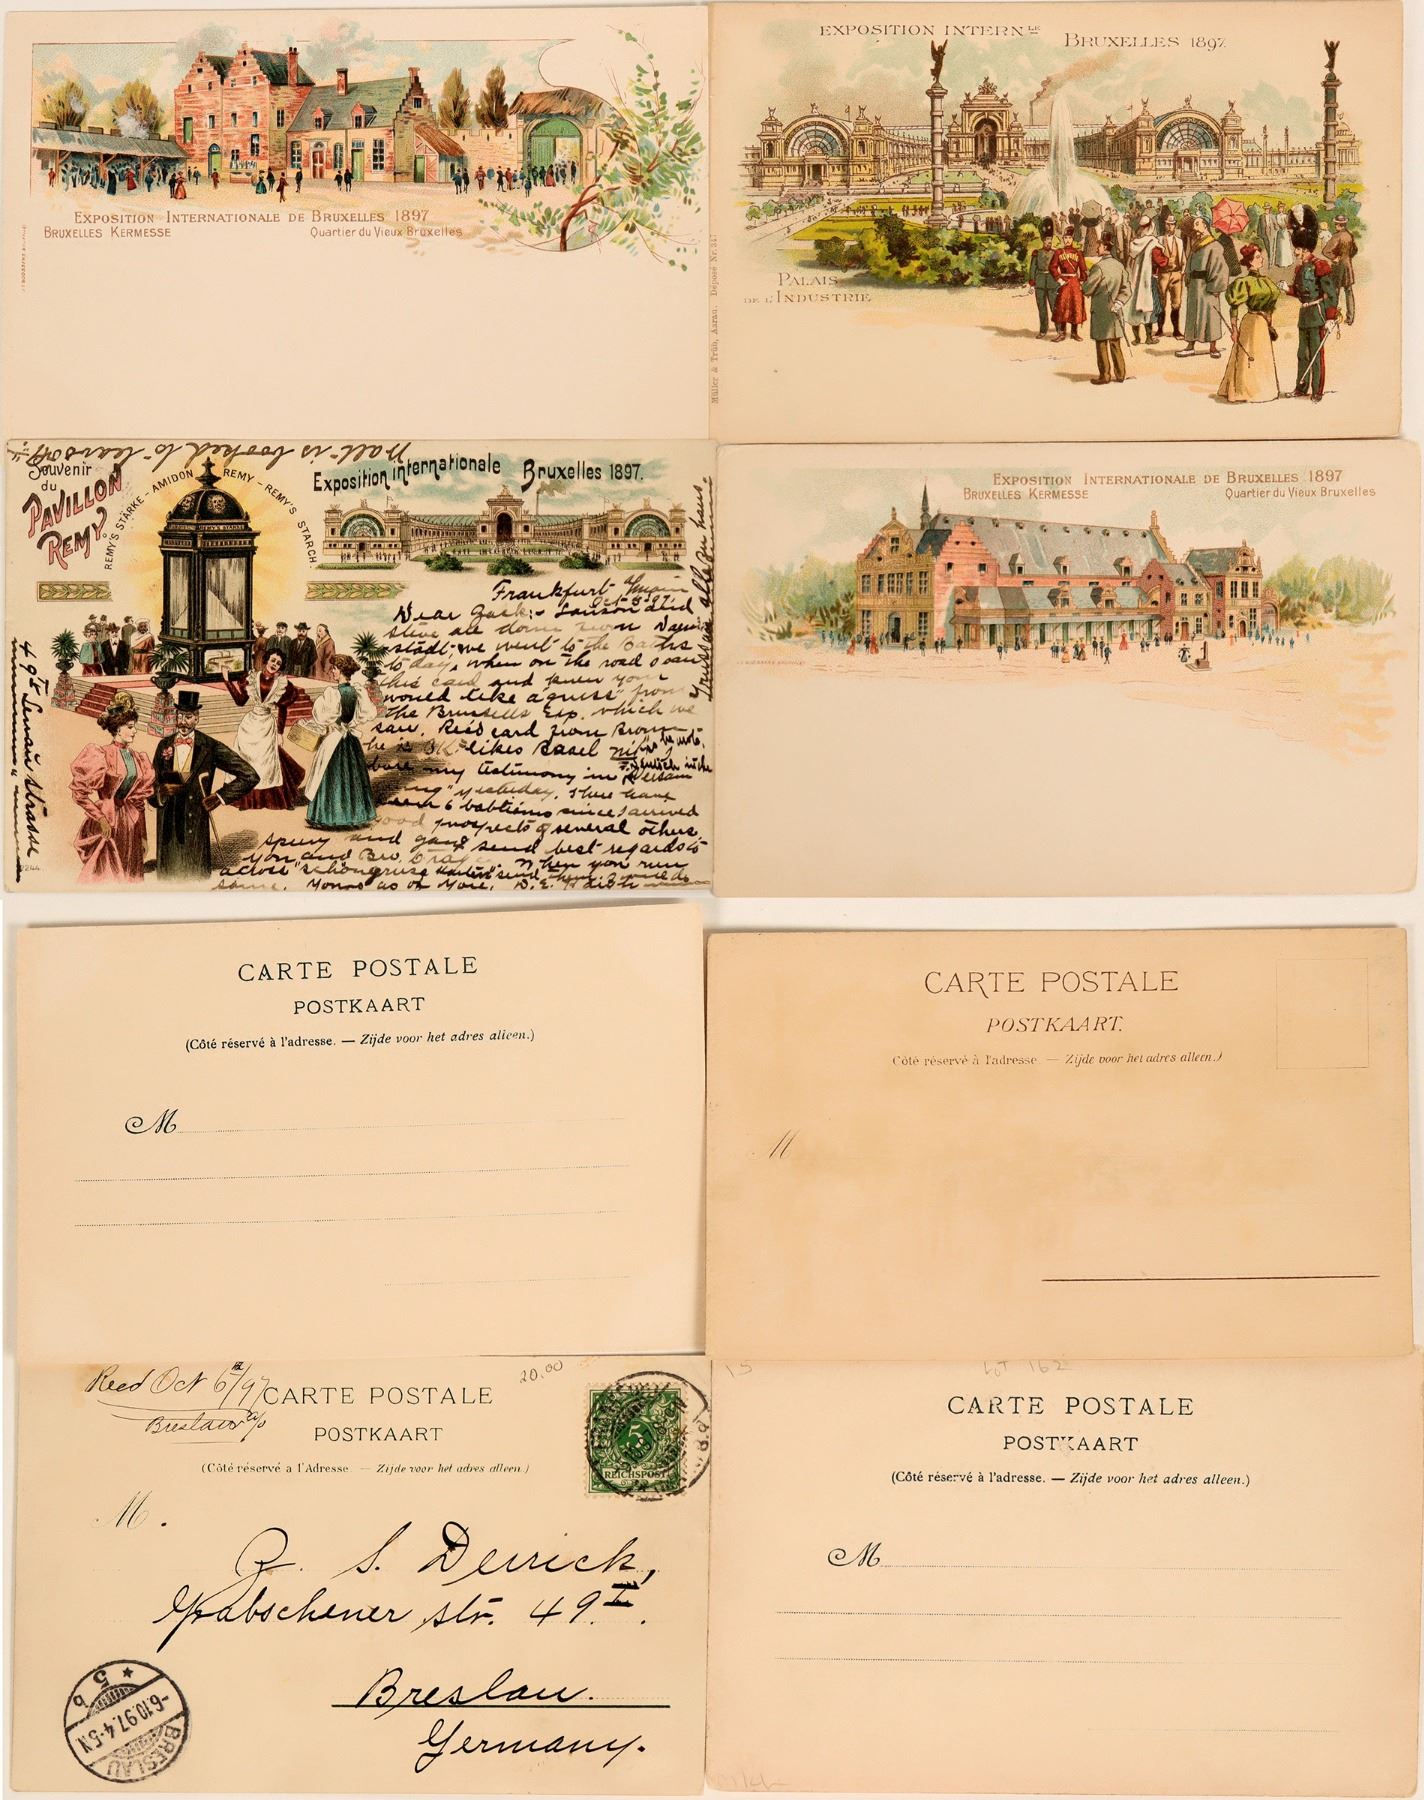 EXPOSITION INTERNATIONALE DE BRUXELLES 1897
BRUXELLES KERMESSE
Quartier du Vieux Bruxelles
EXPOSITION INTERNLE BRUXELLES 1897.
PALAIS
DE L'INDUSTRIE
Müller & Trüb, Aarau. Déposé Nr. 347
Walt is booked to
Souvenir
du
PAVILLON
REMY.
REMY'S STÄRKE - AMIDON REMY - REMY'S STARCH.
Exposition internationale Bruxelles 1897.
Frankfurt a/main
Oct 5 97
Dear Zack:-
stadt. we went to the Baths
to day, when on the road I saw
this card and knew you
would like a "gruss" from
the Brussells Exp. which we
saw. Rec'd card from Brown
he is OK. likes Basel
bore my testimony in
yesterday. I have
6 babtisms since I arrived
good prospects of several others.
Spury and gang send best regards to
you and Bro. When you run
across "schöngruss Karten" send them
same. Yours as of Yore. D. E.
49 strasse
244.
EXPOSITION INTERNATIONALE DE BRUXELLES 1897
BRUXELLES KERMESSE
Quartier du Vieux Bruxelles
CARTE POSTALE
POSTKAART
(Côté réservé à l'adresse. — Zijde voor het adres alleen.)
M
CARTE POSTALE
POSTKAART.
Côté réservé à l'adresse. — Zijde voor het adres alleen.)
M
Recd Oct 6th/97
Breslau
20.00
CARTE POSTALE
POSTKAART
(Côté réservé a l'Adresse. — Zijde voor het adres alleen.)
5
REICHSPOST
M.
Z. S. Derrick,
Grabschener str. 49 I.
Breslau.
Germany.
BRESLAU
-6.10.97.4-5N
5 b
15
LOT 162
CARTE POSTALE
POSTKAART
(Côté réservé à l'adresse. — Zijde voor het adres alleen.)
M